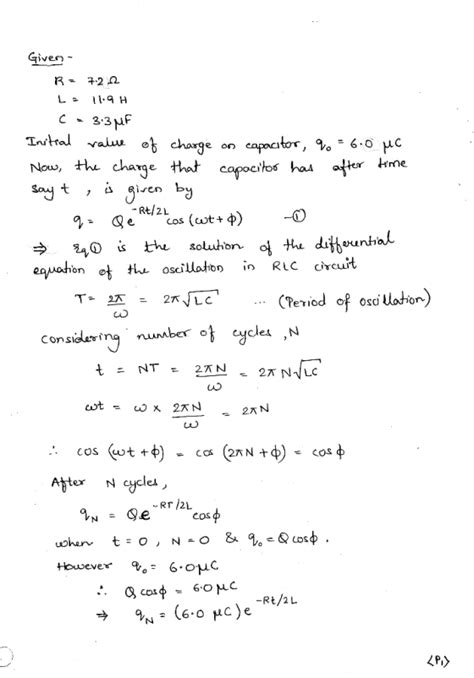 Given -
R = 7.2 Ω
L = 11.9 H
C = 3.3 μF
Initial value of charge on capacitor, q₀ = 6.0 μC
Now, the charge that capacitor has after time
say t , is given by
q = Qe^(-Rt/2L) cos (ωt + φ) -①
⇒ Eq ① is the solution of the differential
equation of the oscillation in RLC circuit
T = 2π/ω = 2π√LC ... (Period of oscillation)
considering number of cycles , N
t = NT = 2πN/ω = 2π N√LC
ωt = ω × 2πN/ω = 2πN
∴ cos (ωt + φ) = cos (2πN + φ) = cos φ
After N cycles,
q_N = Qe^(-RT/2L) cosφ
when t = 0 , N = 0 & q₀ = Q cosφ .
However q₀ = 6.0μC
∴ Q cosφ = 6.0μC
⇒ q_N = (6.0 μC) e^(-Rt/2L)
<P₁>